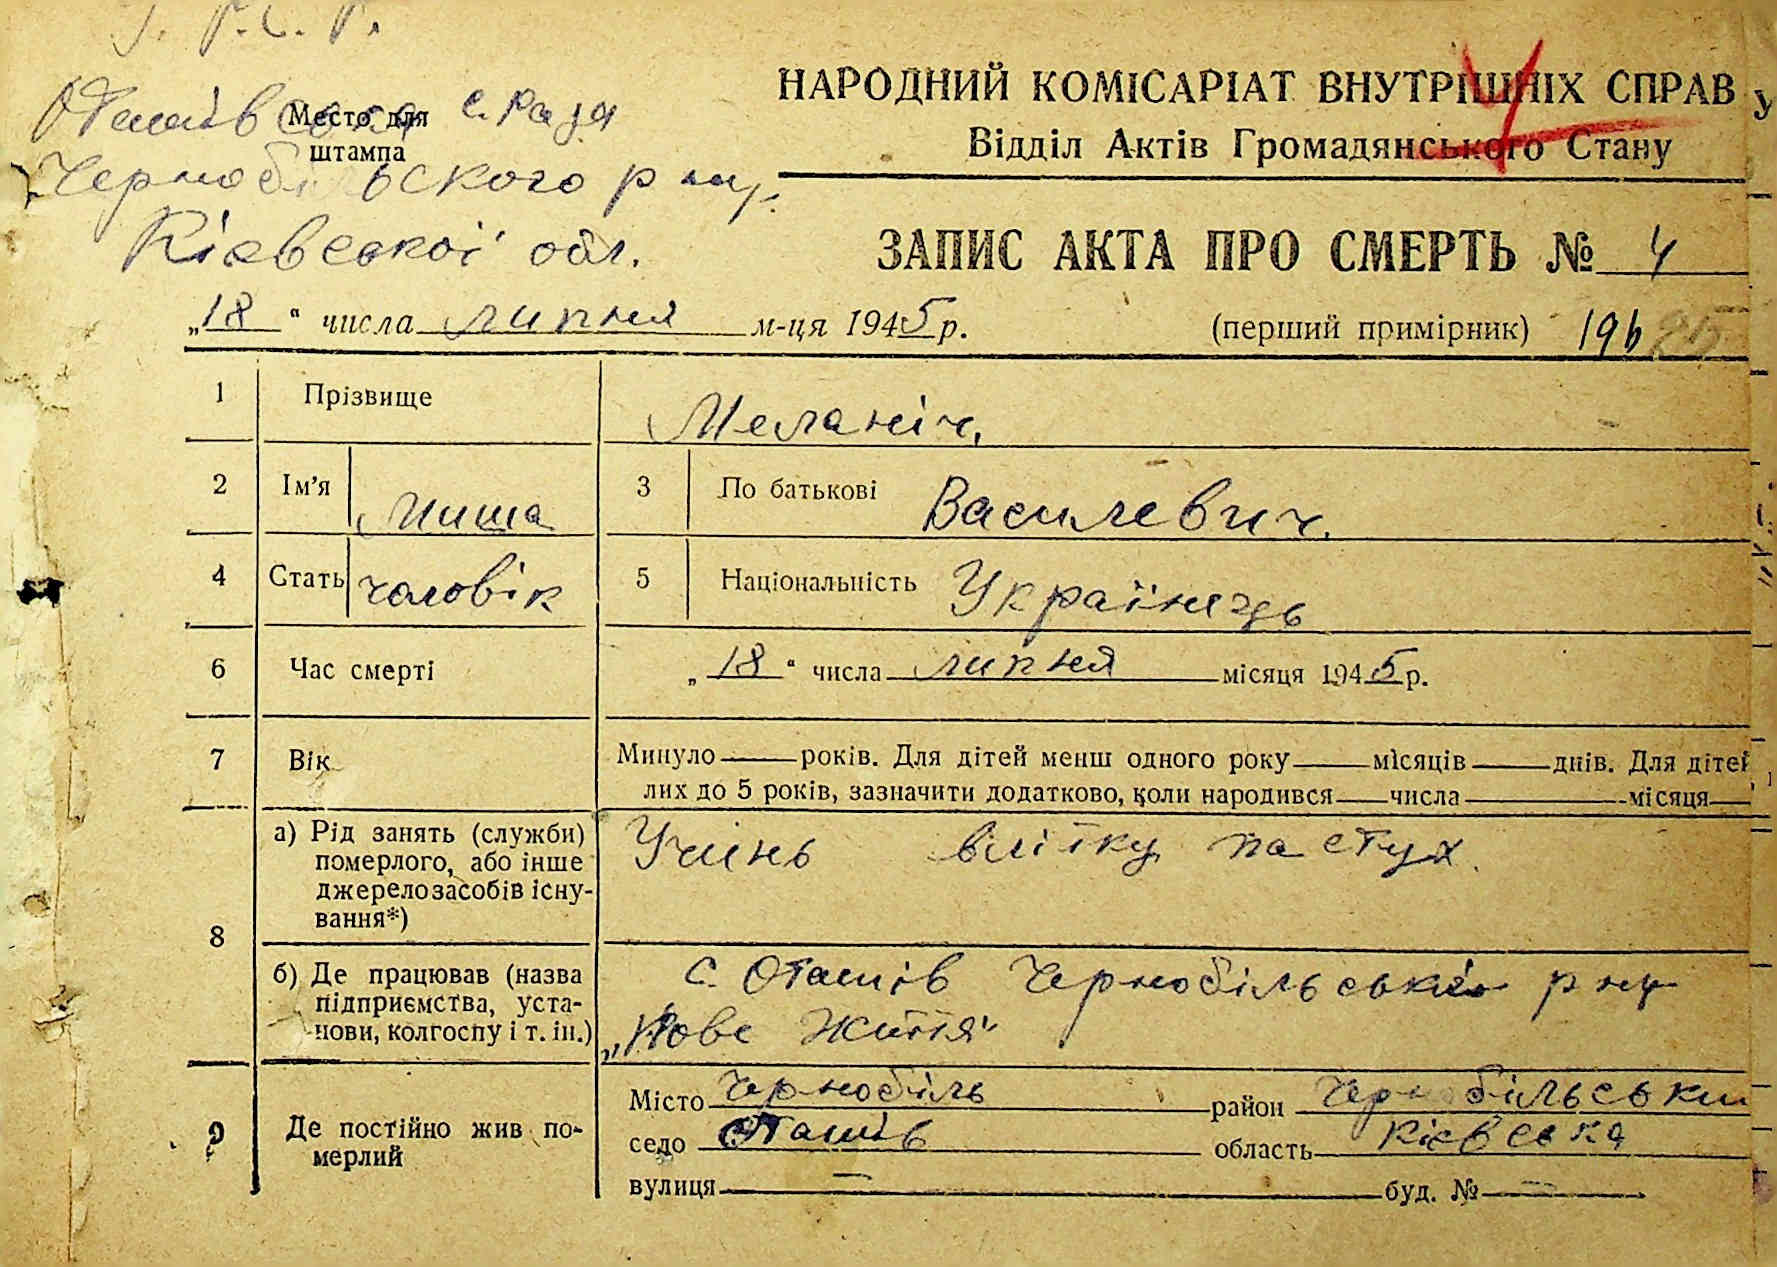 У. Р.С.Р.
Оташівська с. рада
Место для
штампа
Чернобільского р ну.
Кієвської обл.
НАРОДНИЙ КОМІСАРІАТ ВНУТРІШНІХ СПРАВ У
Відділ Актів Громадянського Стану
ЗАПИС АКТА ПРО СМЕРТЬ № 4
„18“ числа липня м-ця 1945 р.
(перший примірник) 196
1 Прізвище Меланіч.
2 Ім'я Миша 3 По батькові Василевич.
4 Стать чоловік 5 Національність Українець
6 Час смерті „18“ числа липня місяця 1945 р.
7 Вік Минуло — років. Для дітей менш одного року — місяців — днів. Для дітей
лих до 5 років, зазначити додатково, коли народився — числа — місяця —
8 а) Рід занять (служби)
померлого, або інше
джерело засобів існу-
вання*)
Учінь влітку пастух.
б) Де працював (назва
підприємства, уста-
нови, колгоспу і т. ін.)
с. Оташів Чернобільсько р ну
„Нове Життя"
9 Де постійно жив по-
мерлий
Місто Чернобіль район Чернобільськи
село Оташів область Кієвська
вулиця — буд. № —